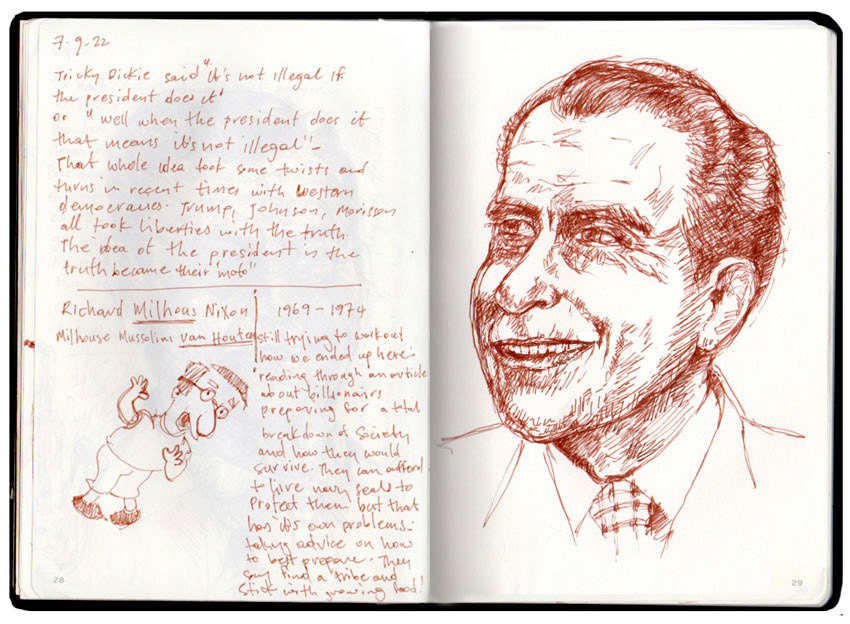 7-9-22
Tricky Dickie said "it's not illegal if
the president does it"
or "well when the president does it
that means it's not illegal"-
That whole idea took some twists and
turns in recent times with western
democracies. Trump, Johnson, Morisson
all took liberties with the truth.
The idea of the president is the
truth became their "moto"
Richard Milhous Nixon 1969-1974
Milhouse Mussolini van Houten
still trying to work out
how we ended up here-
reading through an article
about billionairs
preparing for a total
breakdown of society
and how they would
survive. They can afford
to hire navy seals to
protect them but that
has it's own problems-
taking advice on how
to best prepare. They
say find a tribe and
stick with growing food!
28
29